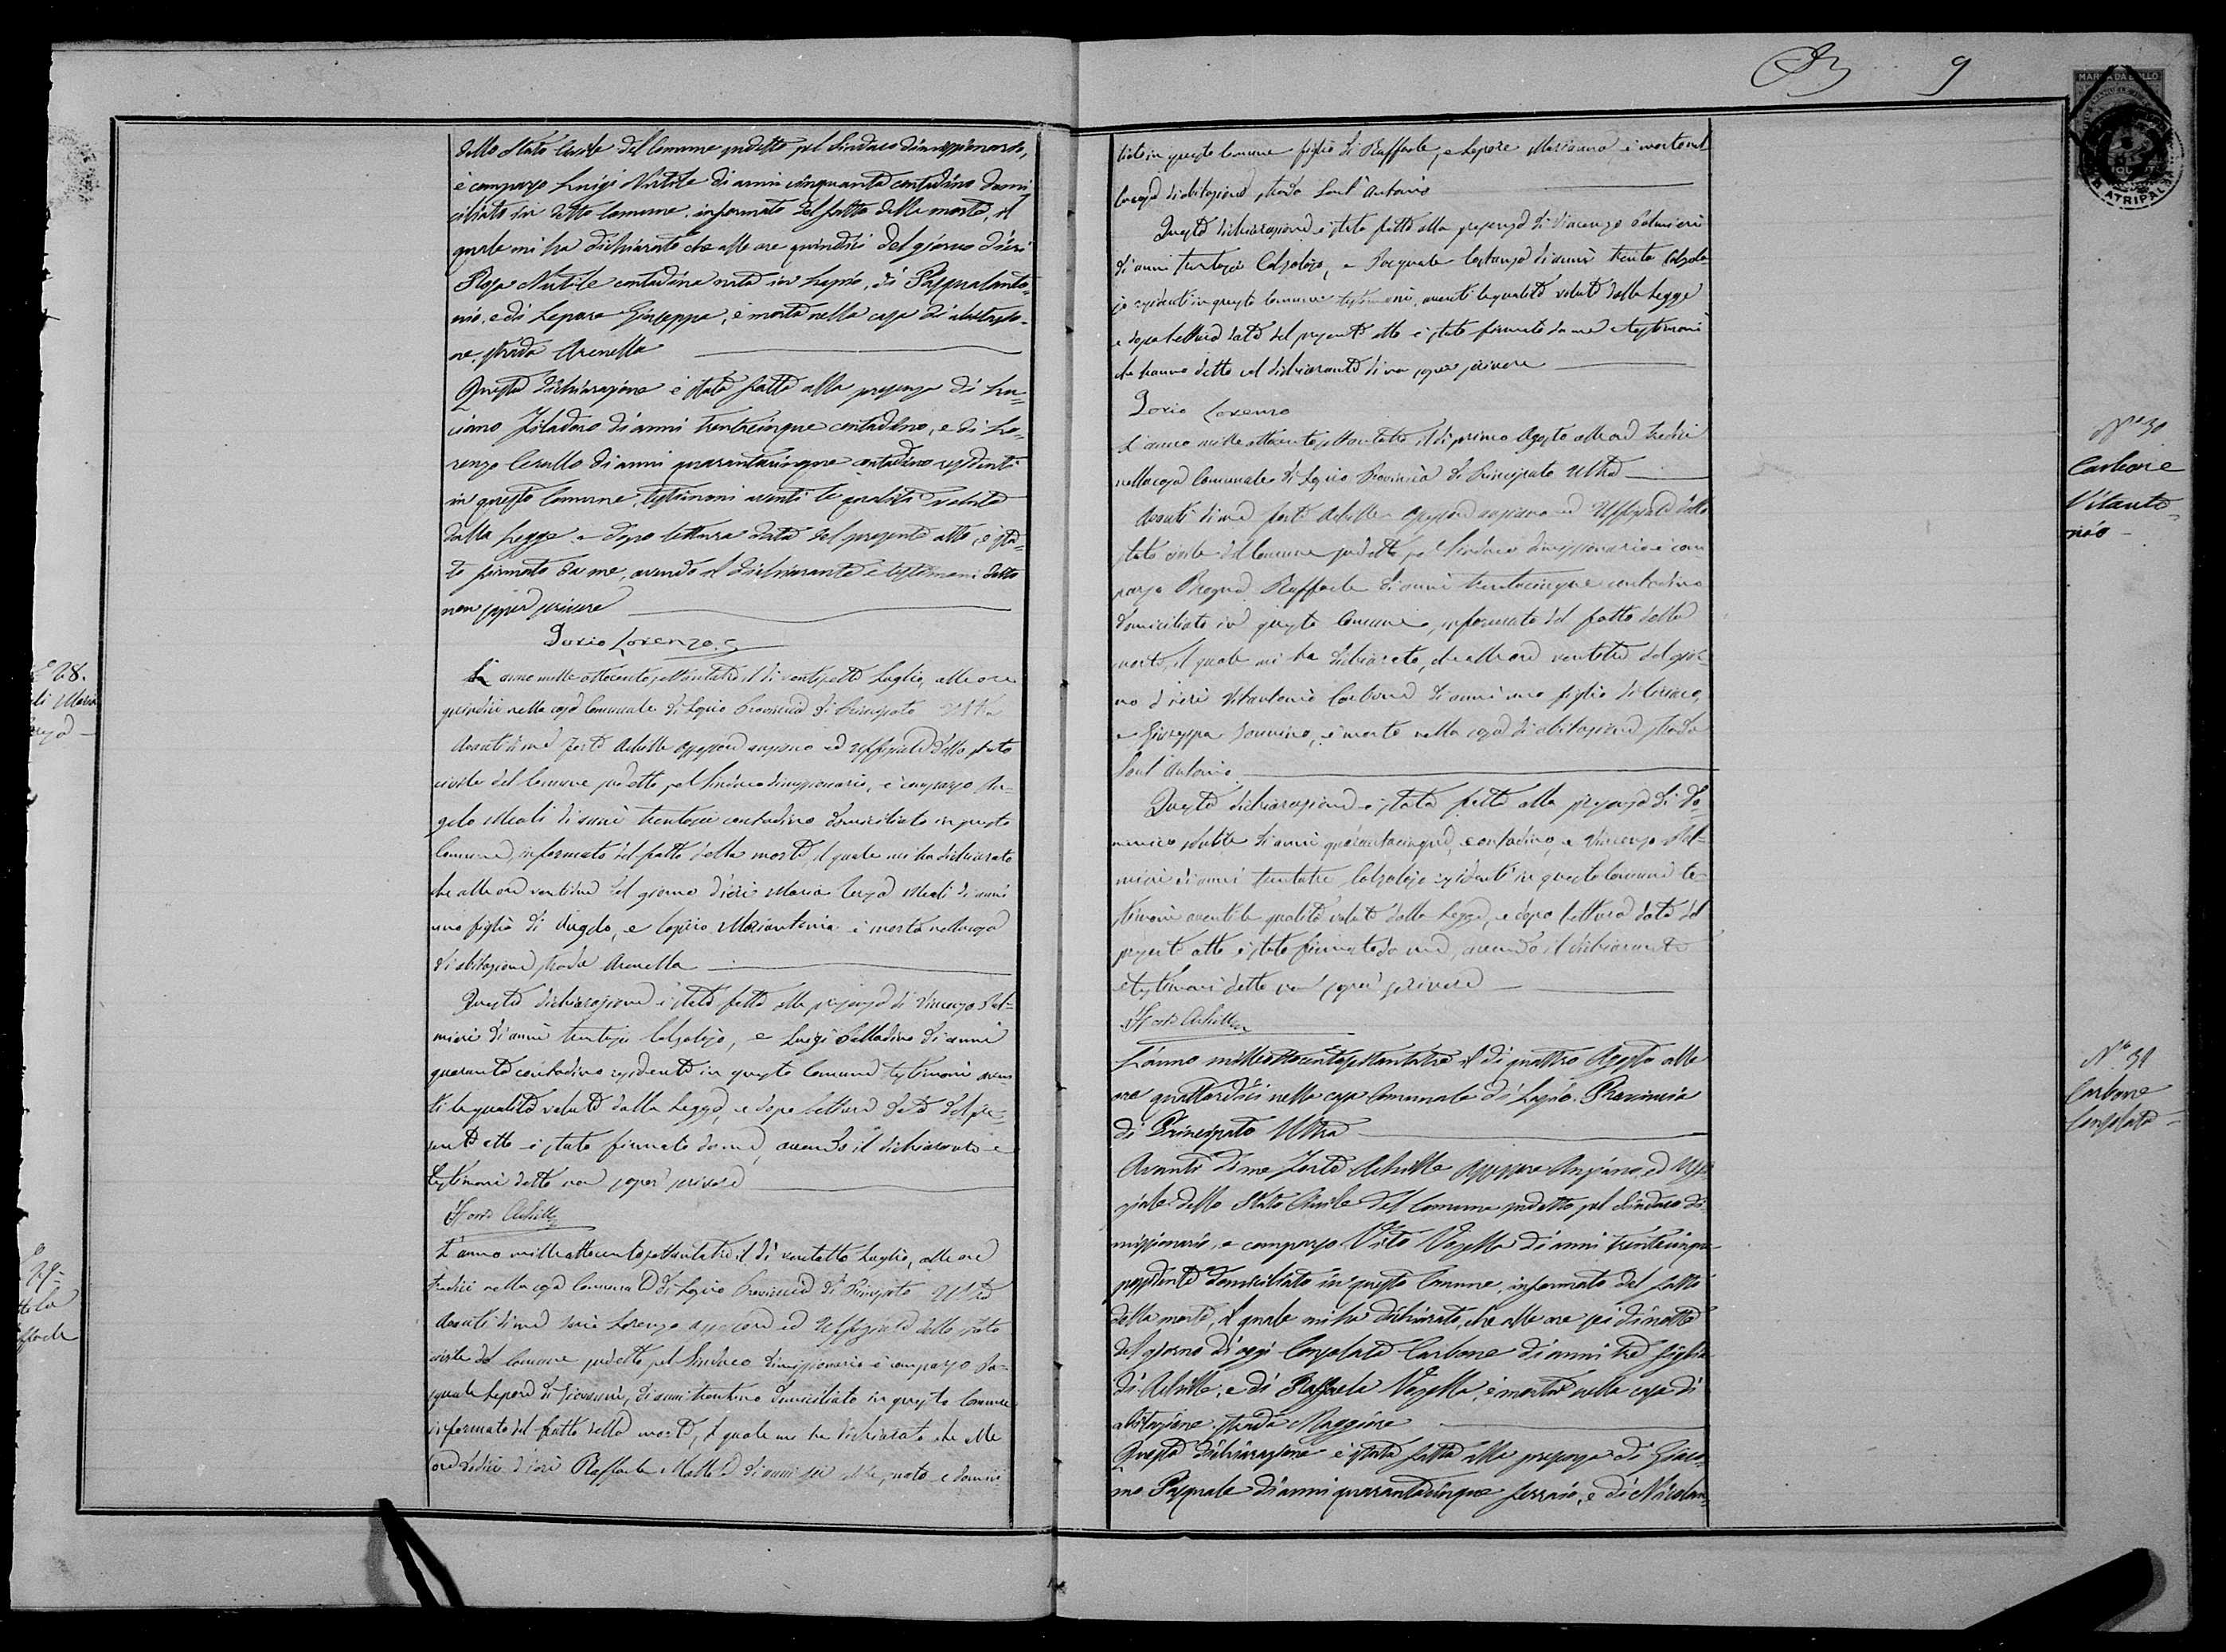 dello Stato Civile del Comune sudetto pel Sindaco dimissionario,
è comparso Luigi Nutile di anni cinquanta contadino domi
ciliato in detto Comune, informato del fatto della morte, il
quale mi ha dichiarato che alle ore quindici del giorno d'ieri
Rosa Nutile contadina nata in Lapio, di Pasqualanto=
nio, e di Lepore Giuseppa, è morta nella casa di abitazio=
ne, strada Arenella
Questa dichiarazione è stata fatta alla presenza di Lu=
ciano di anni trentacinque contadino, e di Lo=
renzo Cerullo di anni quarantacinque contadino residenti
in questo Comune, testimoni aventi le qualità volute
dalla Legge e dopo lettura data del presente atto, è sta=
to firmato da me, avendo il dichiarante e testimoni detto
non saper scrivere
Lorenzo
L'anno milleottocentosettantatre il dì ventisette Luglio, alle ore
quindici nella casa Comunale di Lapio Provincia di Principato Ultra
Avanti di me Forte Achille Assessore anziano ed Uffiziale dello stato
civile del Comune sudetto pel Sindaco dimissionario, è comparso An=
gelo Meoli di anni trentasei contadino domiciliato in questo
Comune, informato del fatto della morte, il quale mi ha dichiarato
che alle ore ventidue del giorno d'ieri Maria Teresa Meoli di anni
uno figlia di Angelo, e Mariantonia è morta nella casa
di abitazione strada Arenella
Questa dichiarazione è stata fatta alla presenza di Vincenzo Pal=
mieri di anni trentasei Calzolajo, e Luigi Palladino di anni
quaranta contadino residente in questo Comune testimoni aven
ti le qualità volute dalla Legge, e dopo lettura data del pre=
sente atto è stato firmato da me, avendo il dichiarante e
testimoni detto non saper scrivere
Forte Achille
L'anno milleottocentosettantatre il dì ventotto Luglio, alle ore
tredici nella casa Comunale di Lapio Provincia di Principato Ultra
Avanti di me Lorenzo Assessore ed Uffiziale dello stato
civile del Comune sudetto pel Sindaco dimissionario è comparso Pa=
squale Lepore di Giovanni, di anni trentuno domiciliato in questo Comune
informato del fatto della morte, il quale mi ha dichiarato che alle
ore dodici d'ieri Raffaele di anni sei nato e domici
28.
li Maria
29
9
MARCA DA BOLLO
ATRIPALDA
liato in questo Comune figlio di Raffaele, e Lepore Marianna è morto nel
la casa di abitazione strada Sant'Antonio
Questa dichiarazione è stata fatta alla presenza di Vincenzo Palmieri
di anni trentasei Calzolajo, e Pasquale Costanza di anni trenta Calzola
jo residenti in questo Comune testimoni, aventi le qualità volute dalla Legge
e dopo lettura data del presente atto è stato firmato da me e testimoni
che hanno detto col dichiarante di non saper scrivere
Lorenzo
L'anno milleottocentosettantatre il dì primo Agosto alle ore tredici
nella casa Comunale di Lapio Provincia di Principato Ultra
Avanti di me Forte Achille Assessore anziano ed Uffiziale dello
stato civile del Comune sudetto pel Sindaco dimissionario è com
parso Raffaele di anni trentacinque contadino
domiciliato in questo Comune, informato del fatto della
morte, il quale mi ha dichiarato, che alle ore ventitre del gior
no d'ieri Vitantonio Carbone di anni uno figlio di
e Giuseppa è morto nella casa di abitazione strada
Sant'Antonio
Questa dichiarazione è stata fatta alla presenza di Do=
menico Nutile di anni quarantacinque, contadino, e Vincenzo Pal=
mieri di anni trentatre Calzolajo residenti in questo Comune te=
stimoni aventi le qualità volute dalla Legge, e dopo lettura data del
presente atto è stato firmato da me, avendo il dichiarante
e testimoni detto non saper scrivere
Forte Achille
L'anno milleottocentosettantatre il dì quattro Agosto alle
ore quattordici nella casa Comunale di Lapio Provincia
di Principato Ultra
Avanti di me Forte Achille Assessore Anziano, ed Uffi
ziale dello Stato Civile del Comune sudetto pel Sindaco di
missionario, è comparso Vito Vozella di anni trentacinque
possidente domiciliato in questo Comune, informato del fatto
della morte, il quale mi ha dichiarato, che alle ore sei di notte
del giorno di oggi Consolata Carbone di anni tre figlia
di Achille, e di Raffaela Vozella, è morta nella casa di
abitazione, strada Maggiore
Questa dichiarazione è stata fatta alla presenza di Giaco=
mo Pasquale di anni quarantacinque ferraio, e di Nicolan=
N° 30
Carbone
Vitanto=
nio
N° 31
Carbone
Consolata